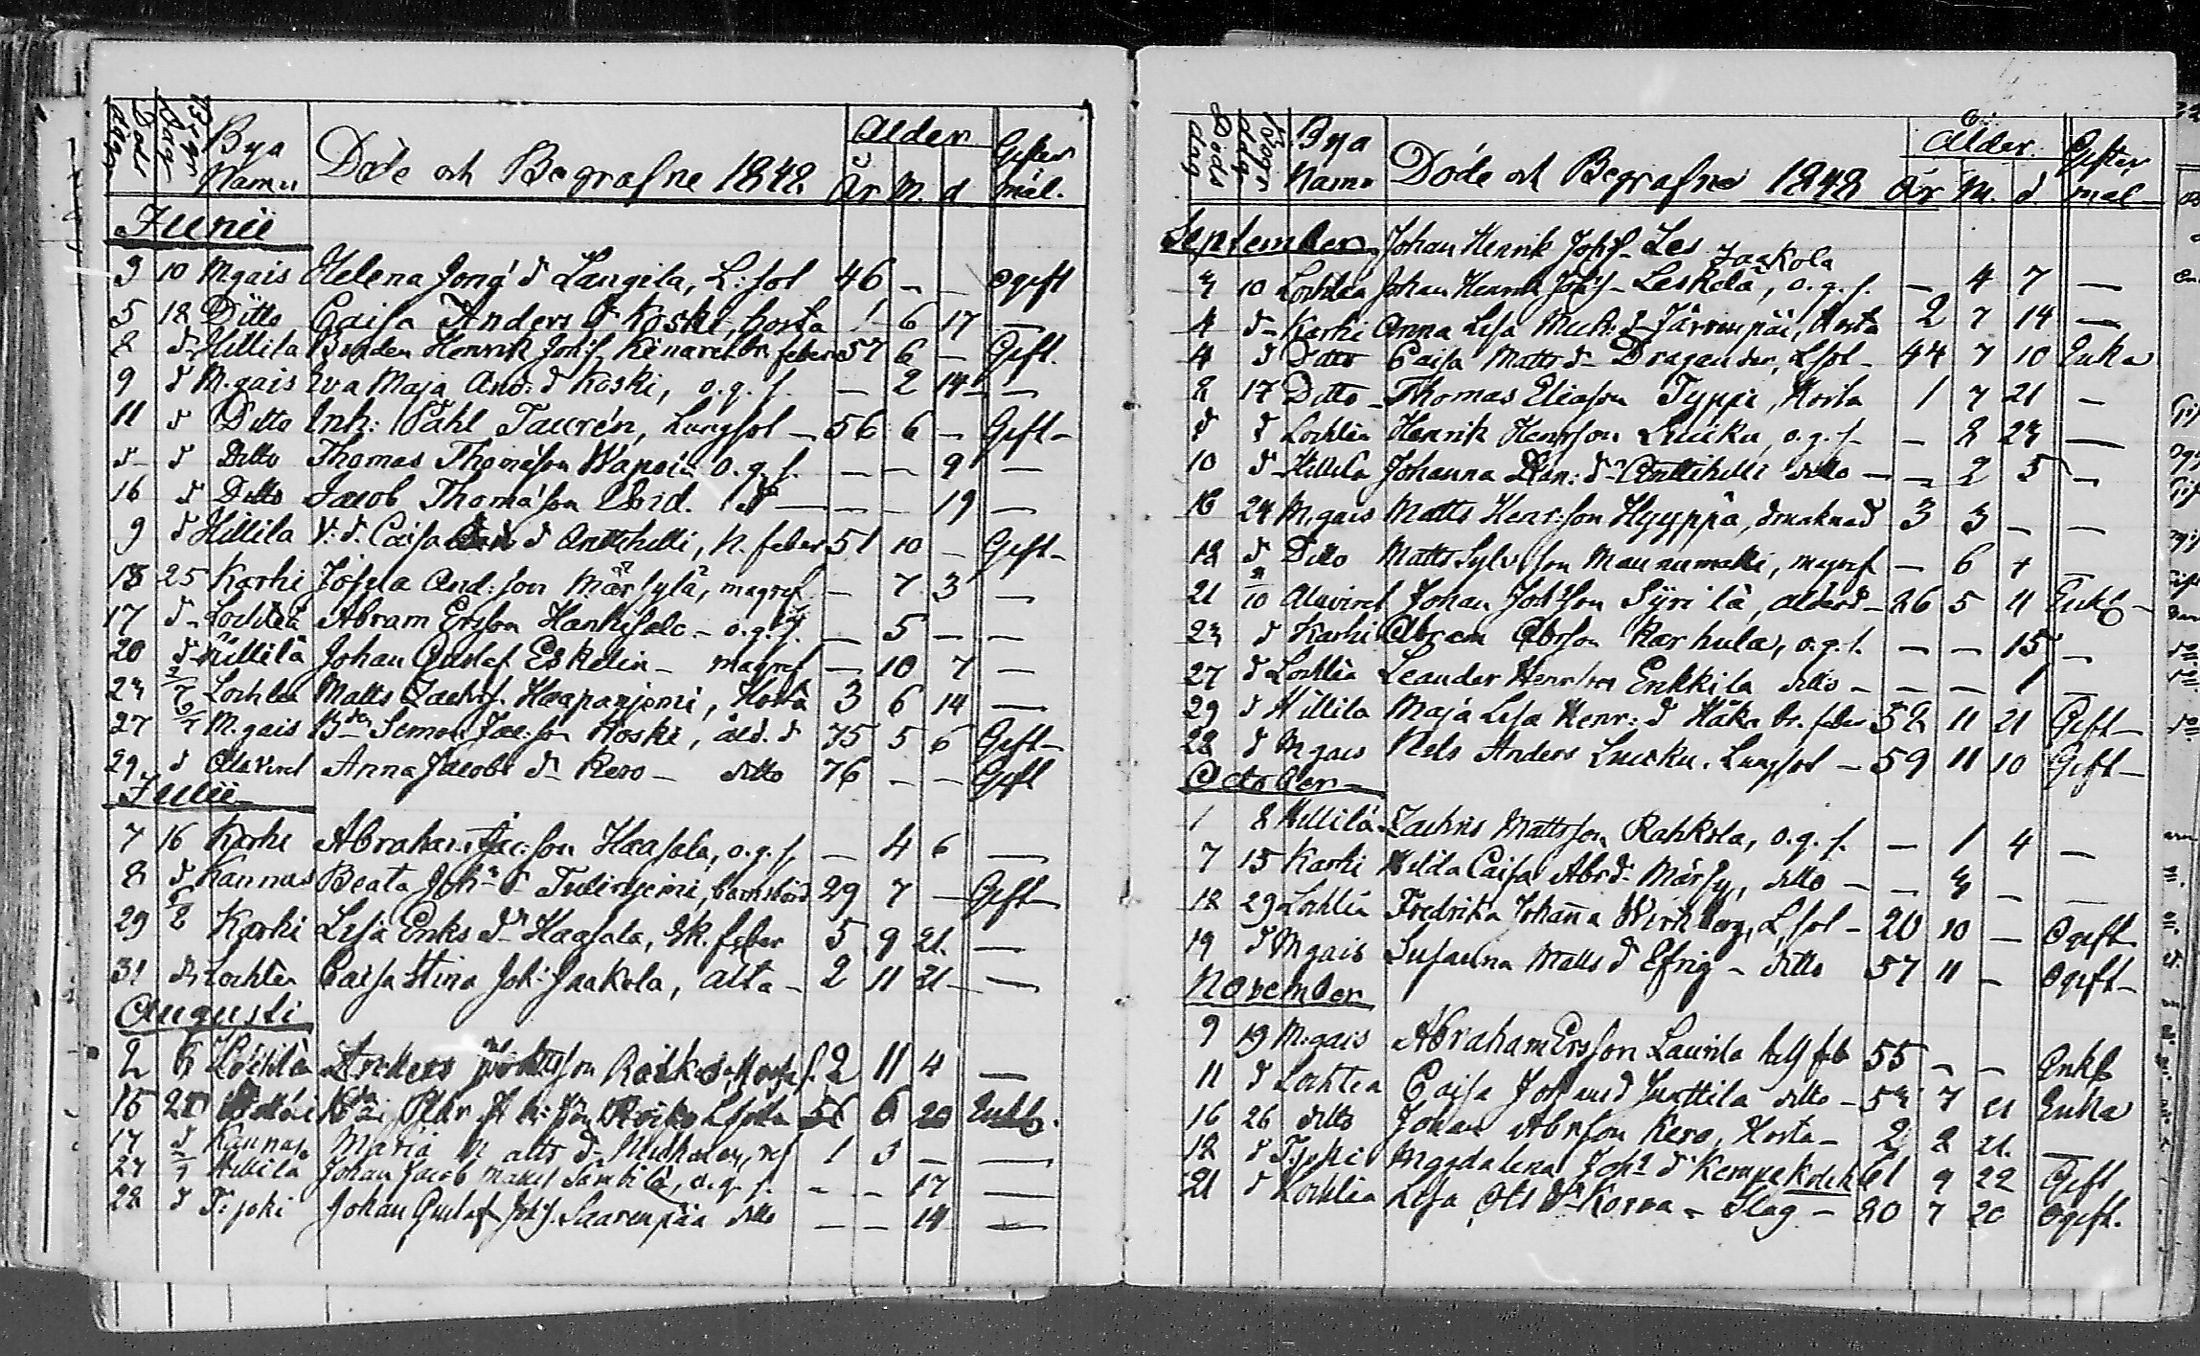 Döds dag Begr dag Bya Namn Döde och Begrafne 1848 Ålder År M. d Giftermål.
Junii
3 10 M.gais Helena Jong d Langila, L:sot 46 – – ogift
5 18 Ditto Caisa Anders d Koski, hosta 1 6 17 –
8 d Hillilä Bonden Henrik Joh:s. Kinaret br. feber 57 6 – Gift.
9 d M.gais Eva Maja And: d Koski, o.g.s. – 2 14 –
11 d Ditto Inh: Påhl Taurén, Lungsot – 56 6 – Gift –
d – d Ditto Thomas Thomasson Wapoi o.g.s. – – 9 –
16 d Ditto Jacob Thomasson d – – – 19 –
9 d Hillilä Caisa d Anttihilli, N. feber 51 10 – Gift –
18 25 Karhi Josefa And:son Märsylä, magref – 7 3 –
17 d – Lochteå Abram Ersson Hankisalo – o.g.s. – 5 – –
20 d – Hillilä Johan Gustaf Eskelin – magref – 10 7 –
23 2/7 Lochteå Matts Zachrs. Haapaniemi, Hosta 3 6 14 –
27 2/7 M.gais Bden Simon Jac:son Koski, åld. d 75 5 6 Gift –
29 d Alaviret Anna Jacobs d – Kero – ditto 76 – – Gift
Julii
7 16 Karhi Abraham Jac:son Haasala, o.g.s. – 4 6 –
8 d Kannus Beata Joh: d Tulinjemi, barnsbörd 29 7 – Gift –
29 6/8 Karhi Lisa Eriks d – Haasala, Sk. feber 5 9 21. –
31 d Lochteå Caisa Stina Joh: Jaakola, dito – 2 11 21 –
Augusti
2 6 Lochteå Anders 2 11 4 –
15 20 56 6 20 Enkl.
17 d Kannus Maria Matts d – 1 3 – –
27 Hillilä Johan Jacob o.g.s. – – 17 –
28 d T:joki Johan Gustaf Joh:s. Saarenpää ditto – – 14 –
Döds dag Begr dag Bya Namn Döde och Begrafne 1848 Ålder. År M. d Giftermål
September Johan Henrik Joh:s – Les Jaakola
3 10 Lochteå Johan Henrik Joh:s – Leskelä, o.g.s. – 4 7 –
4 d – Karhi Anna Lisa Mich: d – Järvenpäi, Hosta 2 7 14 –
4 d Ditto Caisa Matts d – Dragander, Lsot – 44 7 10 Enka
8 17 Ditto – Thomas Eliasson Typpi, Hosta 1 7 21 –
d d Lochteå Henrik Henrsson Luuku, o.g.s. – 8 23 –
10 d – Hillilä Johanna Dan: d – Anttihilli ditto – – 2 5 –
16 24 M.gais Matts Henr:son Hyyppä, drunknad 3 3 – –
18 d Ditto Matts Sylv:son Maunumäki, magref – 6 +
21 8/10 Alaviret Johan Joh:son Syrilä, ålderd – 26 5 11 Enkl –
23 d Karhi Abram Abrson Karhula, o.g.s. – – 15 –
27 d Lochteå Leander Henrson Erkkilä ditto – – – 1 –
29 d Hillilä Maja Lisa Henr: d Håka br. feber 58 11 21 Gift –
28 d M.gais Nils Anders Luuku. Lungsot – 59 11 10 Gift –
October –
1 8 Hillilä Zachris Mattsson Rahkola, o.g.s. – 1 4 –
7 15 Karhi Hilda Caisa Abrd – Märsy, ditto – – 3 – –
18 29 Lochteå Fredrika Johanna Wirkberg, Lsot – 20 10 – Ogift
19 d M.gais Susanna Matts d Efrig – ditto 57 11 – Ogift –
November
9 19 M.gais Abraham Ersson Laurila feb 55 – – Enkl
11 d Lochteå Caisa Joh Junttila ditto – 53 7 21 Enka
16 26 ditto Johan Abrson Kero, Hosta – 2 8 21.
18 d T:joki Magdalena Joh: d 61 9 22 Gift
21 d Lochteå Lisa Ols d – Korva – Slag – 80 7 20 Ogift.